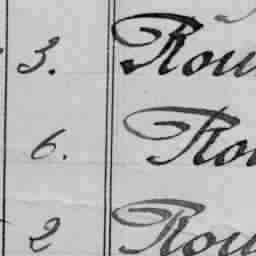 3. Rou
6. Rou
2 Rou